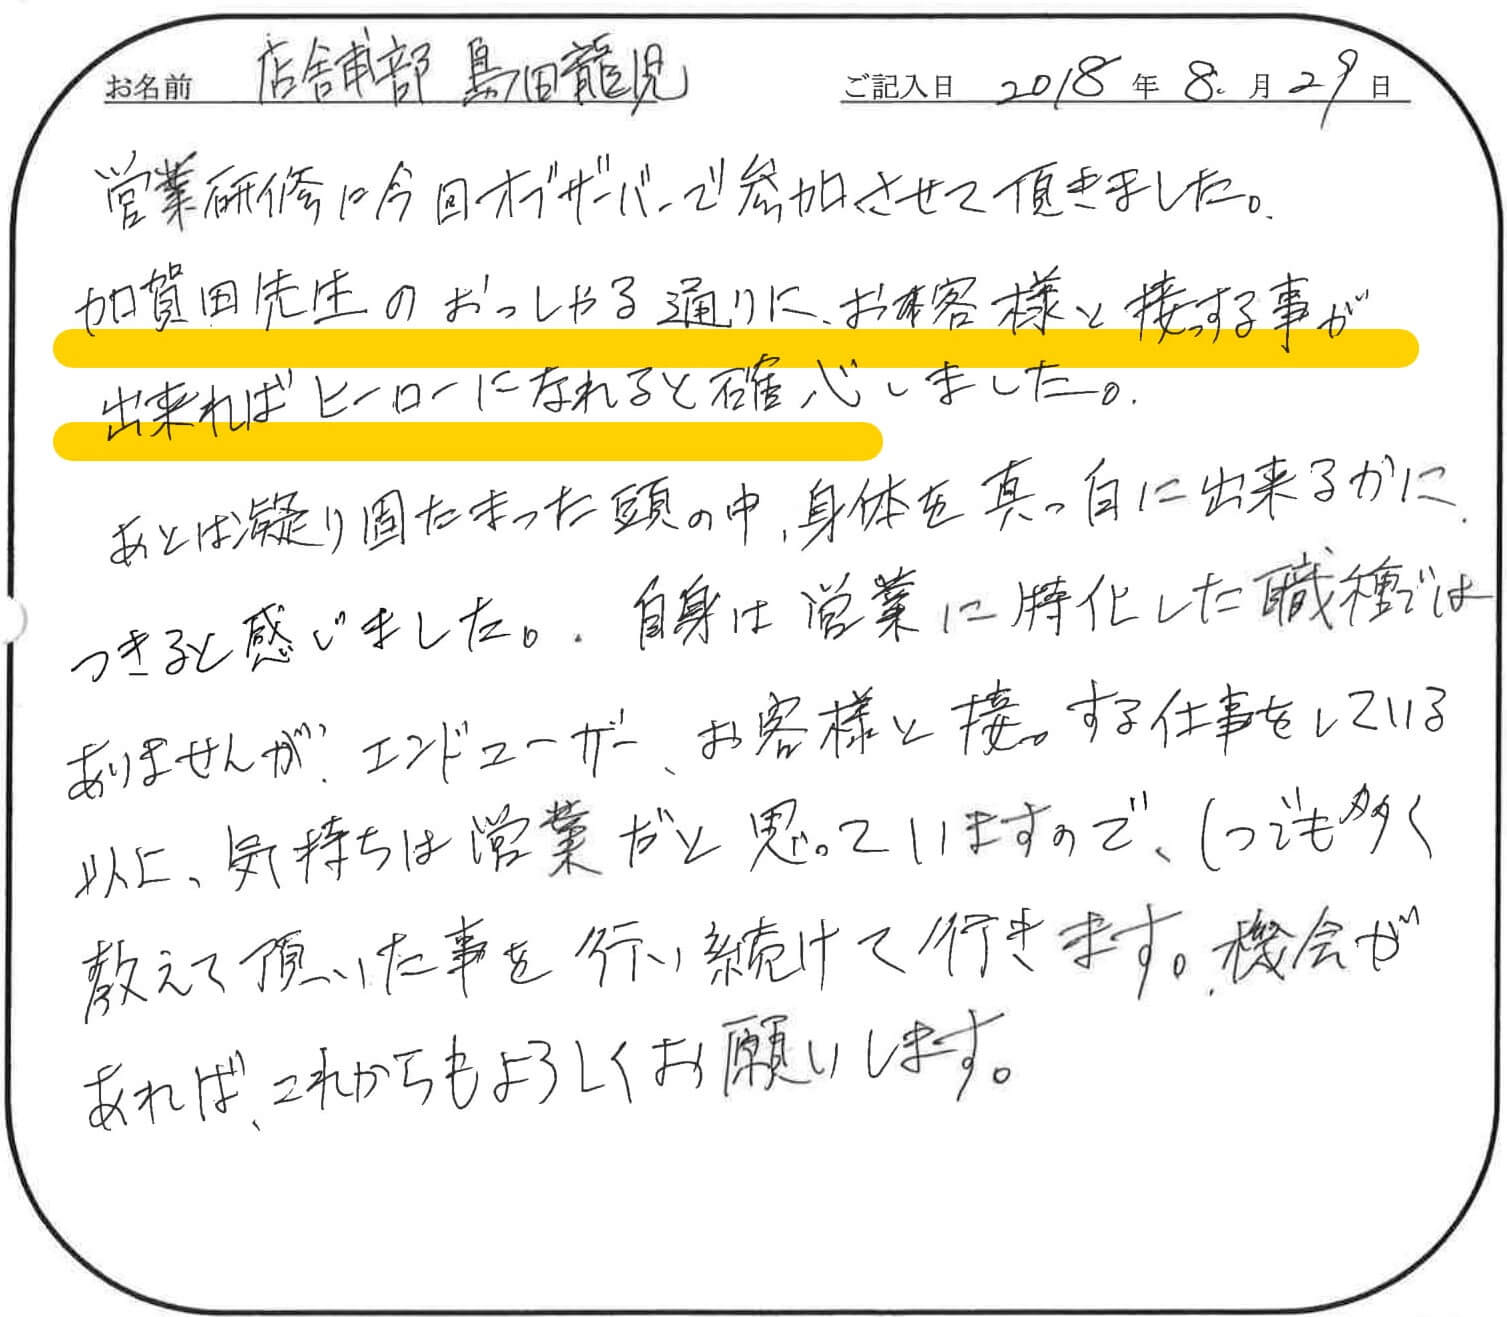 お名前 店舗部 島田龍児 ご記入日 2018年8月29日
営業研修に今回オブザーバーで参加させて頂きました。
加賀田先生のおっしゃる通りに、お客様と接っする事が
出来ればヒーローになれると確心しました。
あとは凝り固たまった頭の中、身体を真っ白に出来るかに
つきると感じました。自身は営業に特化した職種では
ありませんが、エンドユーザー、お客様と接っする仕事をしている
以上、気持ちは営業だと思っていますので、1つでも多く
教えて頂いた事を行い続けて行きます。機会が
あれば、これからもよろしくお願いします。